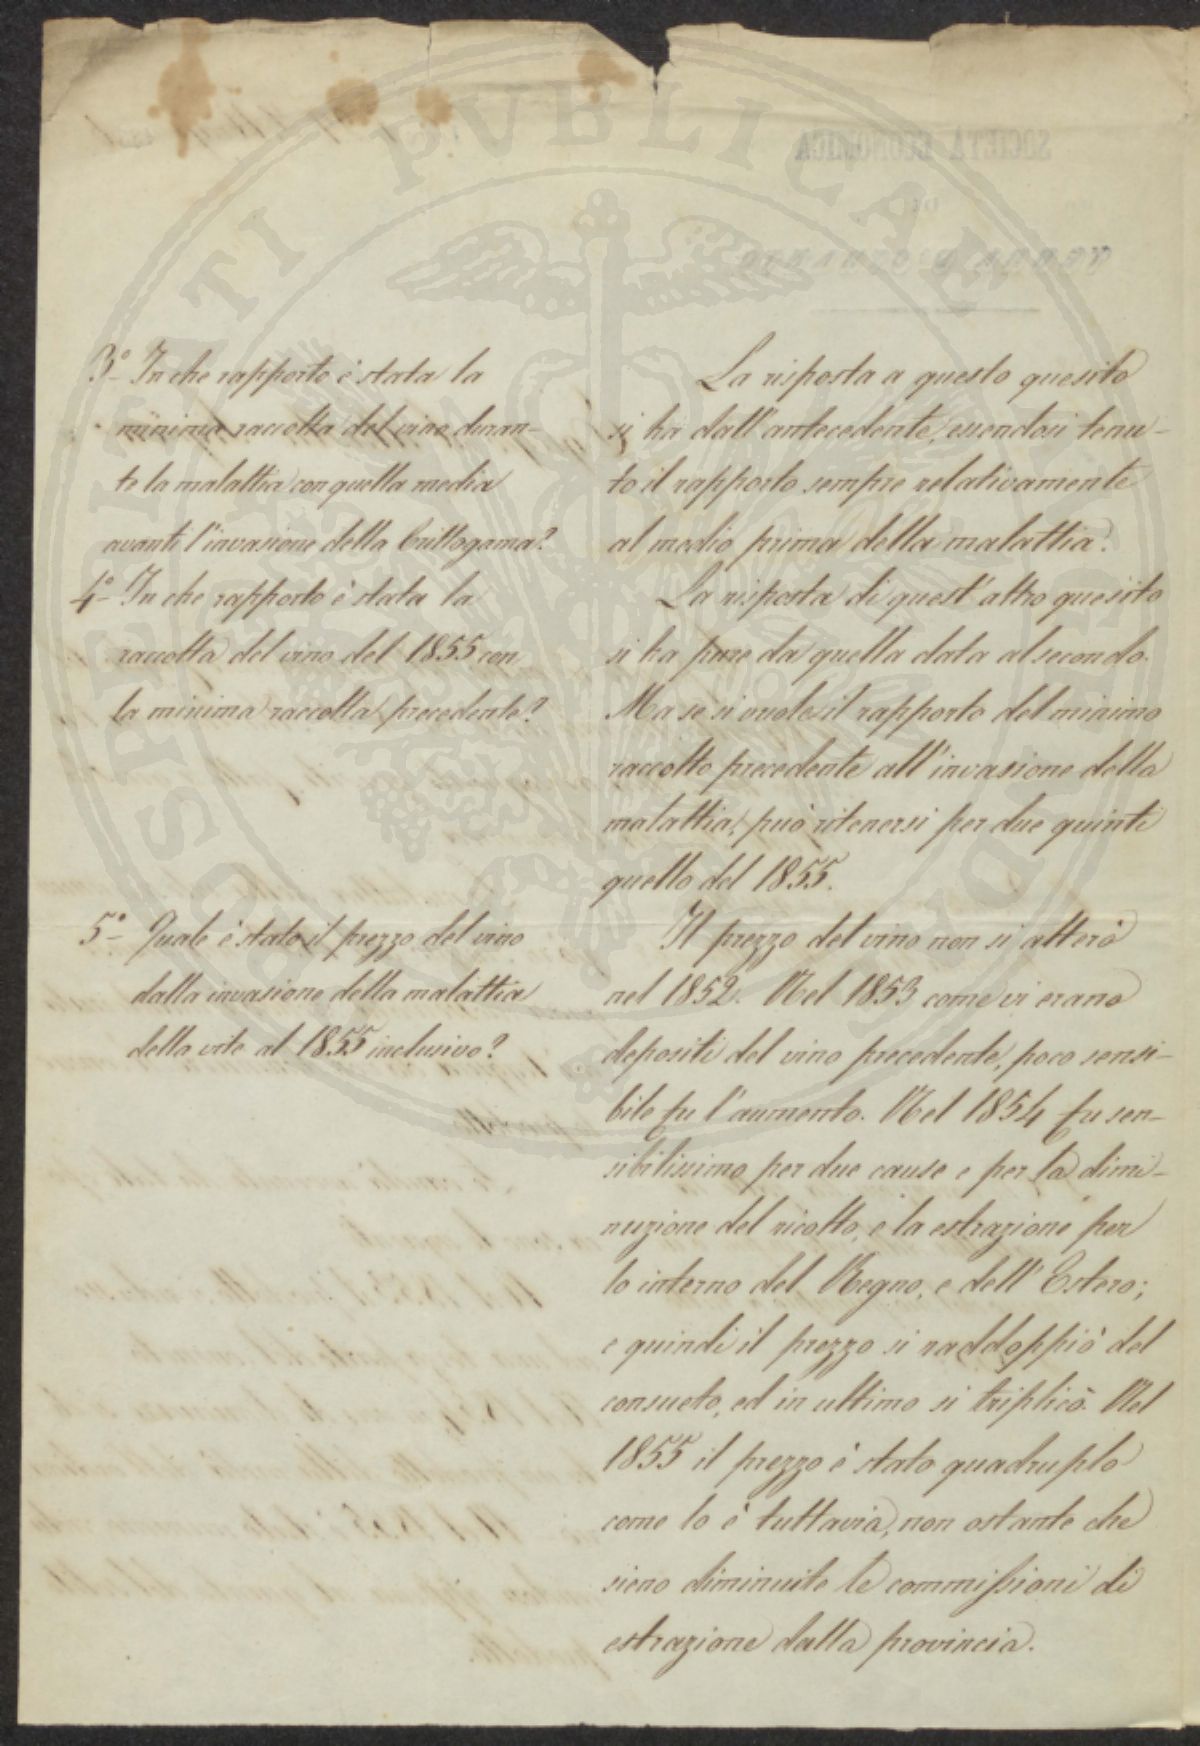 3° In che rapporto è stata la
minima raccolta del vino duran-
te la malattia con quella media
avanti l'invasione della Crittogama?
La risposta a questo quesito
si ha dall'antecedente, essendosi tenu-
to il rapporto sempre relativamente
al medio prima della malattia.
4° In che rapporto è stata la
raccolta del vino del 1855 con
la minima raccolta precedente?
La risposta di quest'altro quesito
si ha pure da quella data al secondo.
Ma se si vuole il rapporto del minimo
raccolto precedente all'invasione della
malattia, può ritenersi per due quinti
quello del 1855.
5° Quale è stato il prezzo del vino
dalla invasione della malattia
della vite al 1855 inclusivo?
Il prezzo del vino non si alterò
nel 1852. Nel 1853 come vi erano
depositi del vino precedente, poco sensi-
bile fu l'aumento. Nel 1854 fu sen-
sibilissimo per due cause e per la dimi-
nuzione del ricolto, e la estrazione per
lo interno del Regno, e dell'Estero;
e quindi il prezzo si raddoppiò del
consueto, ed in ultimo si triplicò. Nel
1855 il prezzo è stato quadruplo
come lo è tuttavia, non ostante che
sieno diminuite le commissioni di
estrazione dalla provincia.
SOCIETÀ ECONOMICA
DI